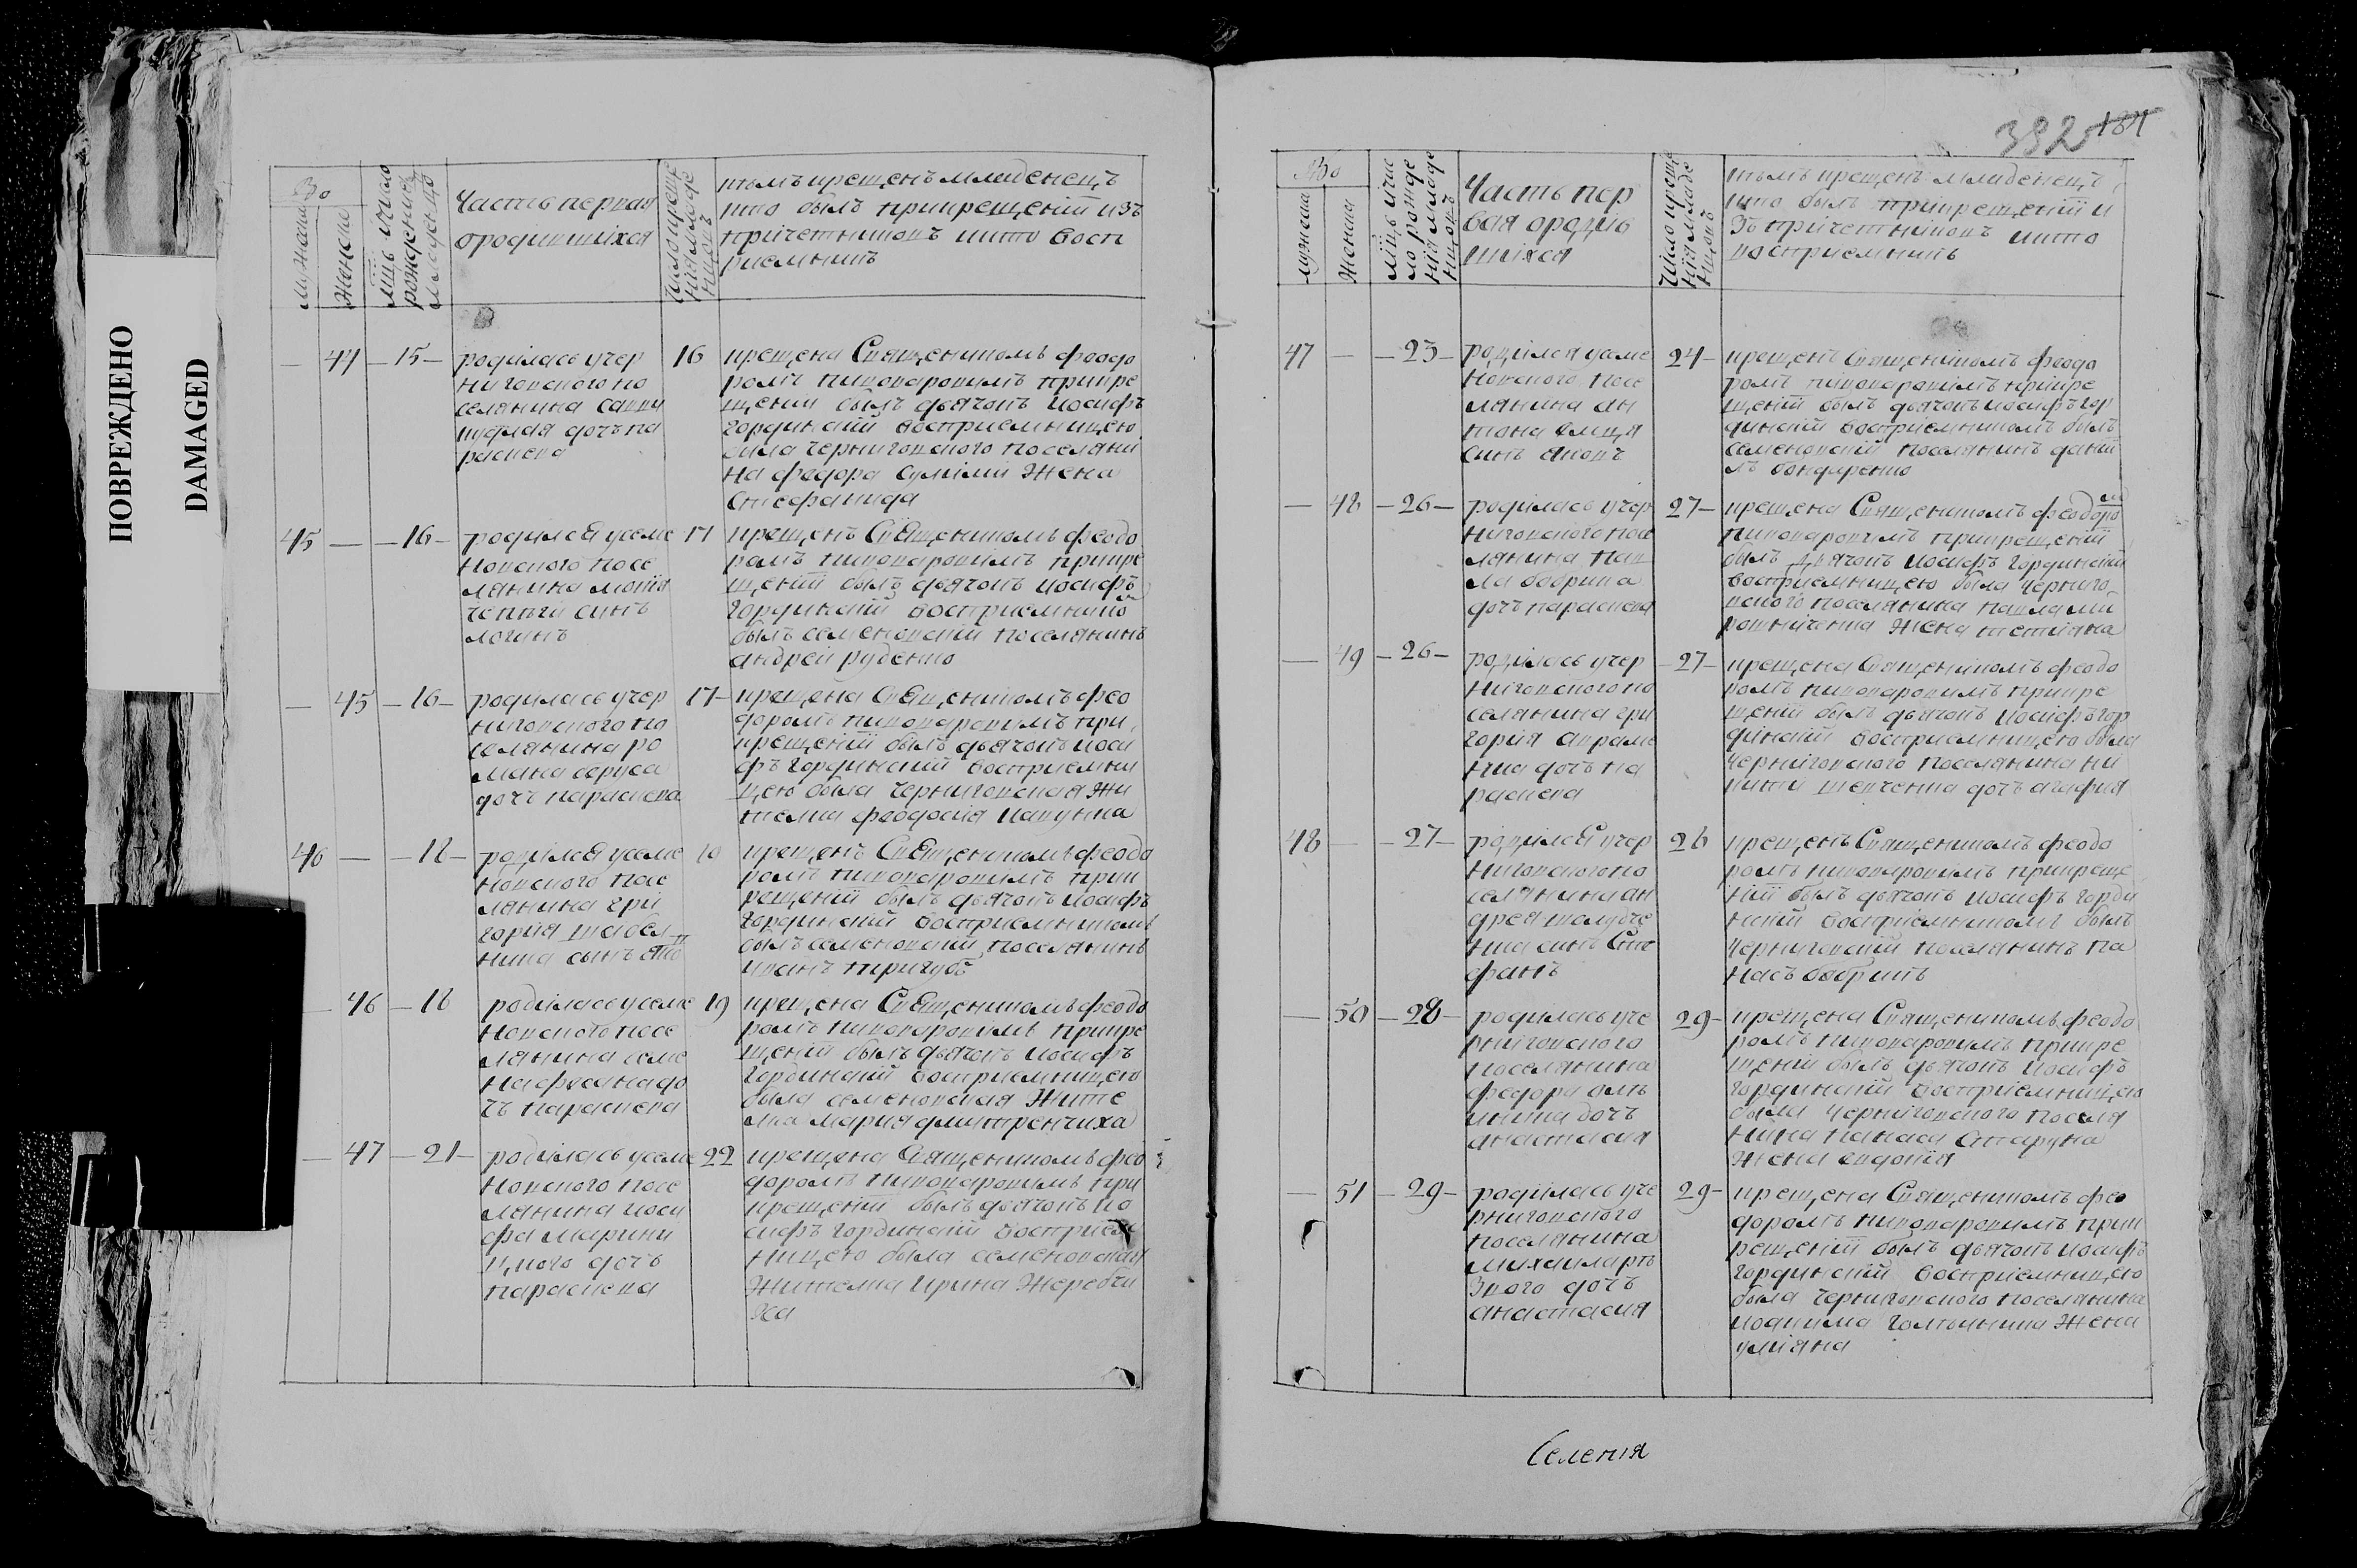 ПОВРЕЖДЕНО
DAMAGED
мужеска
женска
мц҃ъ и число
рожденiя
младенцо
Часть первая
ородившихся
число креще
нiя младе
нцовъ
кѣмъ крещенъ младенецъ
кто былъ прикрещенiи изъ
причетниковъ икто восп
риемникъ
— 44 — 15 —
родилась учер
ниговского по
селянина савки
дочь па
раскева
16
крещена Священикомъ феодо
ромъ прикре
щении былъ дьячокъ иосифъ
гординский восприемницею
била черниговского поселяни
на федора сулими жена
стефанида
45 — — 16 —
родился усеме
новского посе
лянина
синъ
логинъ
17
крещенъ Священикомъ феодо
ромъ прикре
щенiи былъ дьячокъ иосифъ
гординский восприемнико
былъ семеновскiи поселянинъ
андреи руденко
— 45 — 16 —
родилась учер
ниговского по
селянина ро
мана
дочь параскева
17 —
крещена Священикомъ фео
доромъ при
крещенiи былъ дьячокъ иоси
фъ гординский восприемни
цею была черниговская жи
телка феодосiя
46 — — 18 —
родился усеме
новского посе
лянина гри
гория
сынъ
крещенъ Священикомъ феодо
ромъ прик
рещенiи былъ дьячокъ иосифъ
гординский восприемникомъ
былъ семеновский поселянинъ
иванъ тригубъ
— 46 — 18
родилась усеме
новского посе
лянина семе
на фесана до
чъ параскева
19
крещена Священикомъ феодо
ромъ прикре
щенiи былъ дьячокъ иосифъ
гординскiй восприемницею
была семеновская жите
лка мария дмитренчиха
— 47 — 21 —
родилась усеме
новского посе
лянина иоси
фа
дочь
параскева
22
крещена Священикомъ фео
доромъ при
крещенiи былъ дьячокъ ио
сифъ гординский восприем
ницею была семеновская
жителка ирина жеребчи
ха
392 184
мужеска
женска
мц҃ъ и чис
ло рожде
нiя младе
нцовъ
Часть пер
вая ородив
шихся
число креще
нiя младе
нцовъ
кѣмъ крещенъ младенецъ
кто былъ прикрещенiи и
зъ причетниковъ икто
восприемникъ
47 — — 23 —
родился усеме
новского посе
лянина ан
тона
синъ яковъ
24 —
крещенъ Священикомъ феодо
ромъ прикре
щенiй былъ дьячокъ иосифъ гор
динский восприемникомъ былъ
семеновскiй поселянинъ данiи
лъ бондаренко
— 48 — 26 —
родилась учер
ниговского посе
лянина пав
ла бобрика
дочь параскева
27 —
крещена Священикомъ феодоро
м
прикрещенiй
былъ дьячокъ иосифъ гординскiй
восприемницею была черниго
вского поселянина павла ми
рошниченка жена тетiяна
— 49 — 26 —
родилась учер
ниговского по
селянина гри
гория авраме
нка дочь па
раскева
— 27 —
крещена Священикомъ феодо
ромъ прикре
щенiй былъ дьячокъ иосифъ гор
динскiй восприемницею была
черниговского поселянина ни
кити шевченка дочь агафия
48 — — 27 —
родился учер
ниговского по
селянина ан
дрея
синъ сте
фанъ
28
крещенъ Священикомъ феодо
ромъ прикреще
нiи былъ дьячокъ иосифъ горди
нский восприемникомъ былъ
черниговский поселянинъ па
насъ бобрикъ
— 50 — 28 —
родилась уче
рниговского
поселянина
федора
дочь
анастасия
29 —
крещена Священикомъ феодо
ромъ прикре
щенiй былъ дьячокъ иосифъ
гординскiй восприемницею
была черниговского поселя
нина панаса
жена евдокiя
— 51 — 29 —
родилась уче
рниговского
поселянина
дочь
анастасия
29 —
крещена Священикомъ фео
доромъ прик
рещенiй былъ дьячокъ иосифъ
гординскiй восприемницею
была черниговского поселянина
иоакима жена
улiяна
Селения